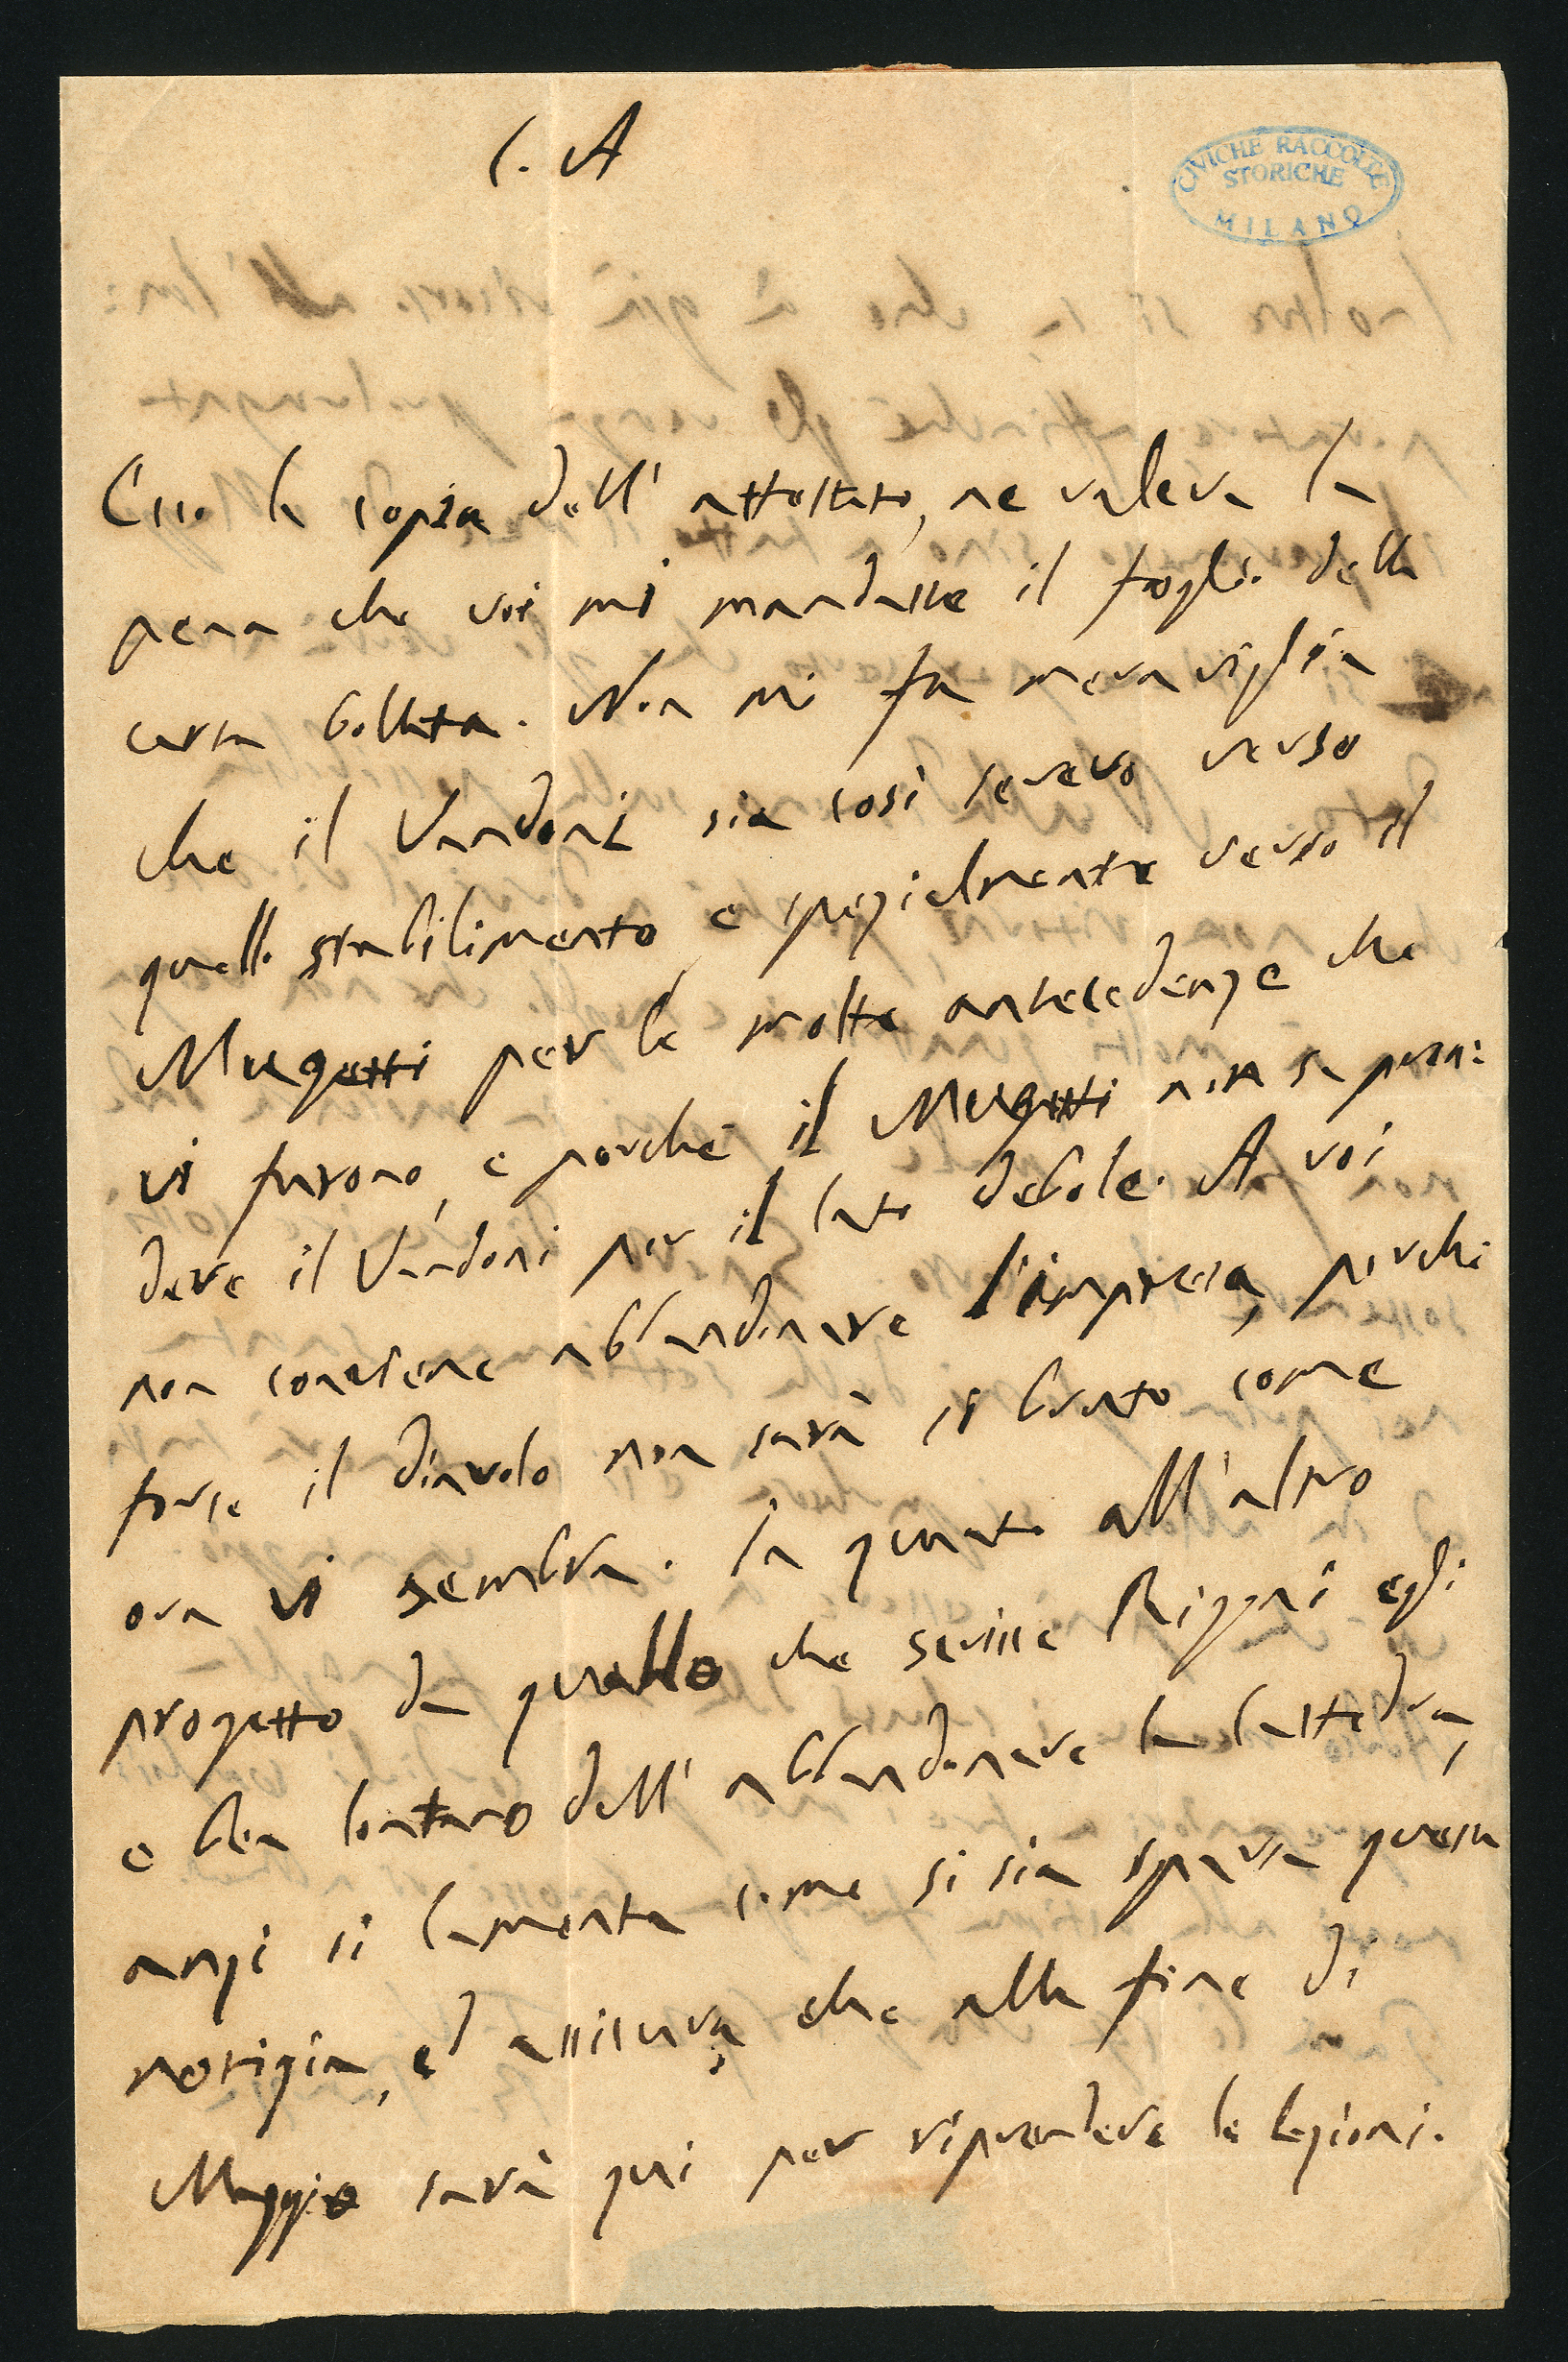 C. A
CIVICHE RACCOLTE
STORICHE
MILANO
Ecco la copia dell' attestato, ne valeva la
pena che voi mi mandaste il foglio della
carta bollata. Non mi fa meraviglia
che il Vandoni sia così severo verso
quello stabilimento, e spezialmente verso il
Mugetti per le molte antecedenze che
vi furono, e perchè il Mugetti non sa pren:
dere il Vandoni per il lato debole. A voi
non conviene abbandonare l'impresa, perchè
forse il diavolo non sarà sì brutto come
ora vi sembra. In quanto all'altro
progetto da quello che scrisse Rizzni egli
e ben lontano dall' abbandonare la Cattedra,
anzi si lamenta come si sia sparsa questa
notizia, ed assicura, che alla fine di
Maggio sarà qui per riprendere le lezioni.